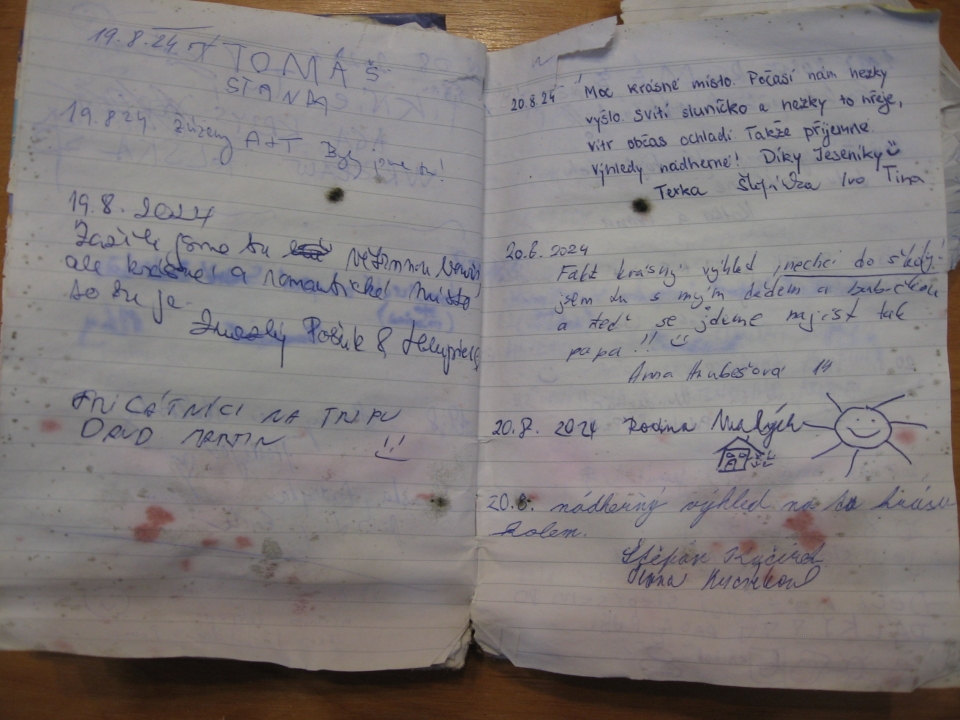 19.8.24
TOMÁŠ
STANDA
19.8.24. A+T Byli jsme tu!
19.8.2024
Zažili jsme tu
ale krásné a romantické místo
to tu je.
Pošík &
TŘICÁTNÍCI NA TRIPU
DAVID MARTIN
20.8.24 Moc krásné místo. Počasí nám hezky
vyšlo. Svítí sluníčko a hezky to hřeje,
vítr občas ochladí. Takže příjemné.
Výhledy nádherné! Díky Jeseníky
Terka Štěpánka Ivo Tina
20.8.2024
Fakt krásný výhled, nechci do školy!
jsem tu s mým dědem a babičkou
a teď se jdeme najíst tak
papa!!
Anna Hrubešová 14
20.8. 2024 Rodina Malých
20.8. nádherný výhled na tu krásu
kolem.
Štěpán Kučera